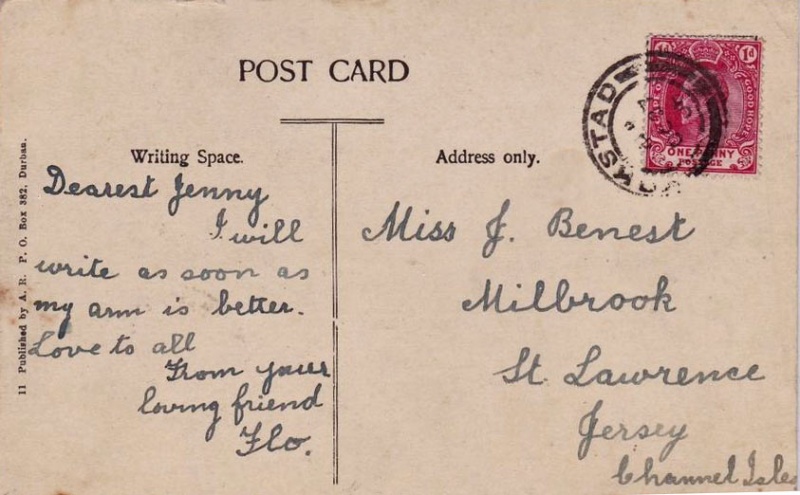 POST CARD
Writing Space.
Address only.
Dearest Jenny
I will
write as soon as
my arm is better.
Love to all
From your
loving friend
Flo.
Miss J. Benest
Milbrook
St Lawrence
Jersey
Channel Isles
11 Published by A. R. P. O. Box 382, Durban.
1d 1d
GOOD HOPE
ONE PENNY
POSTAGE